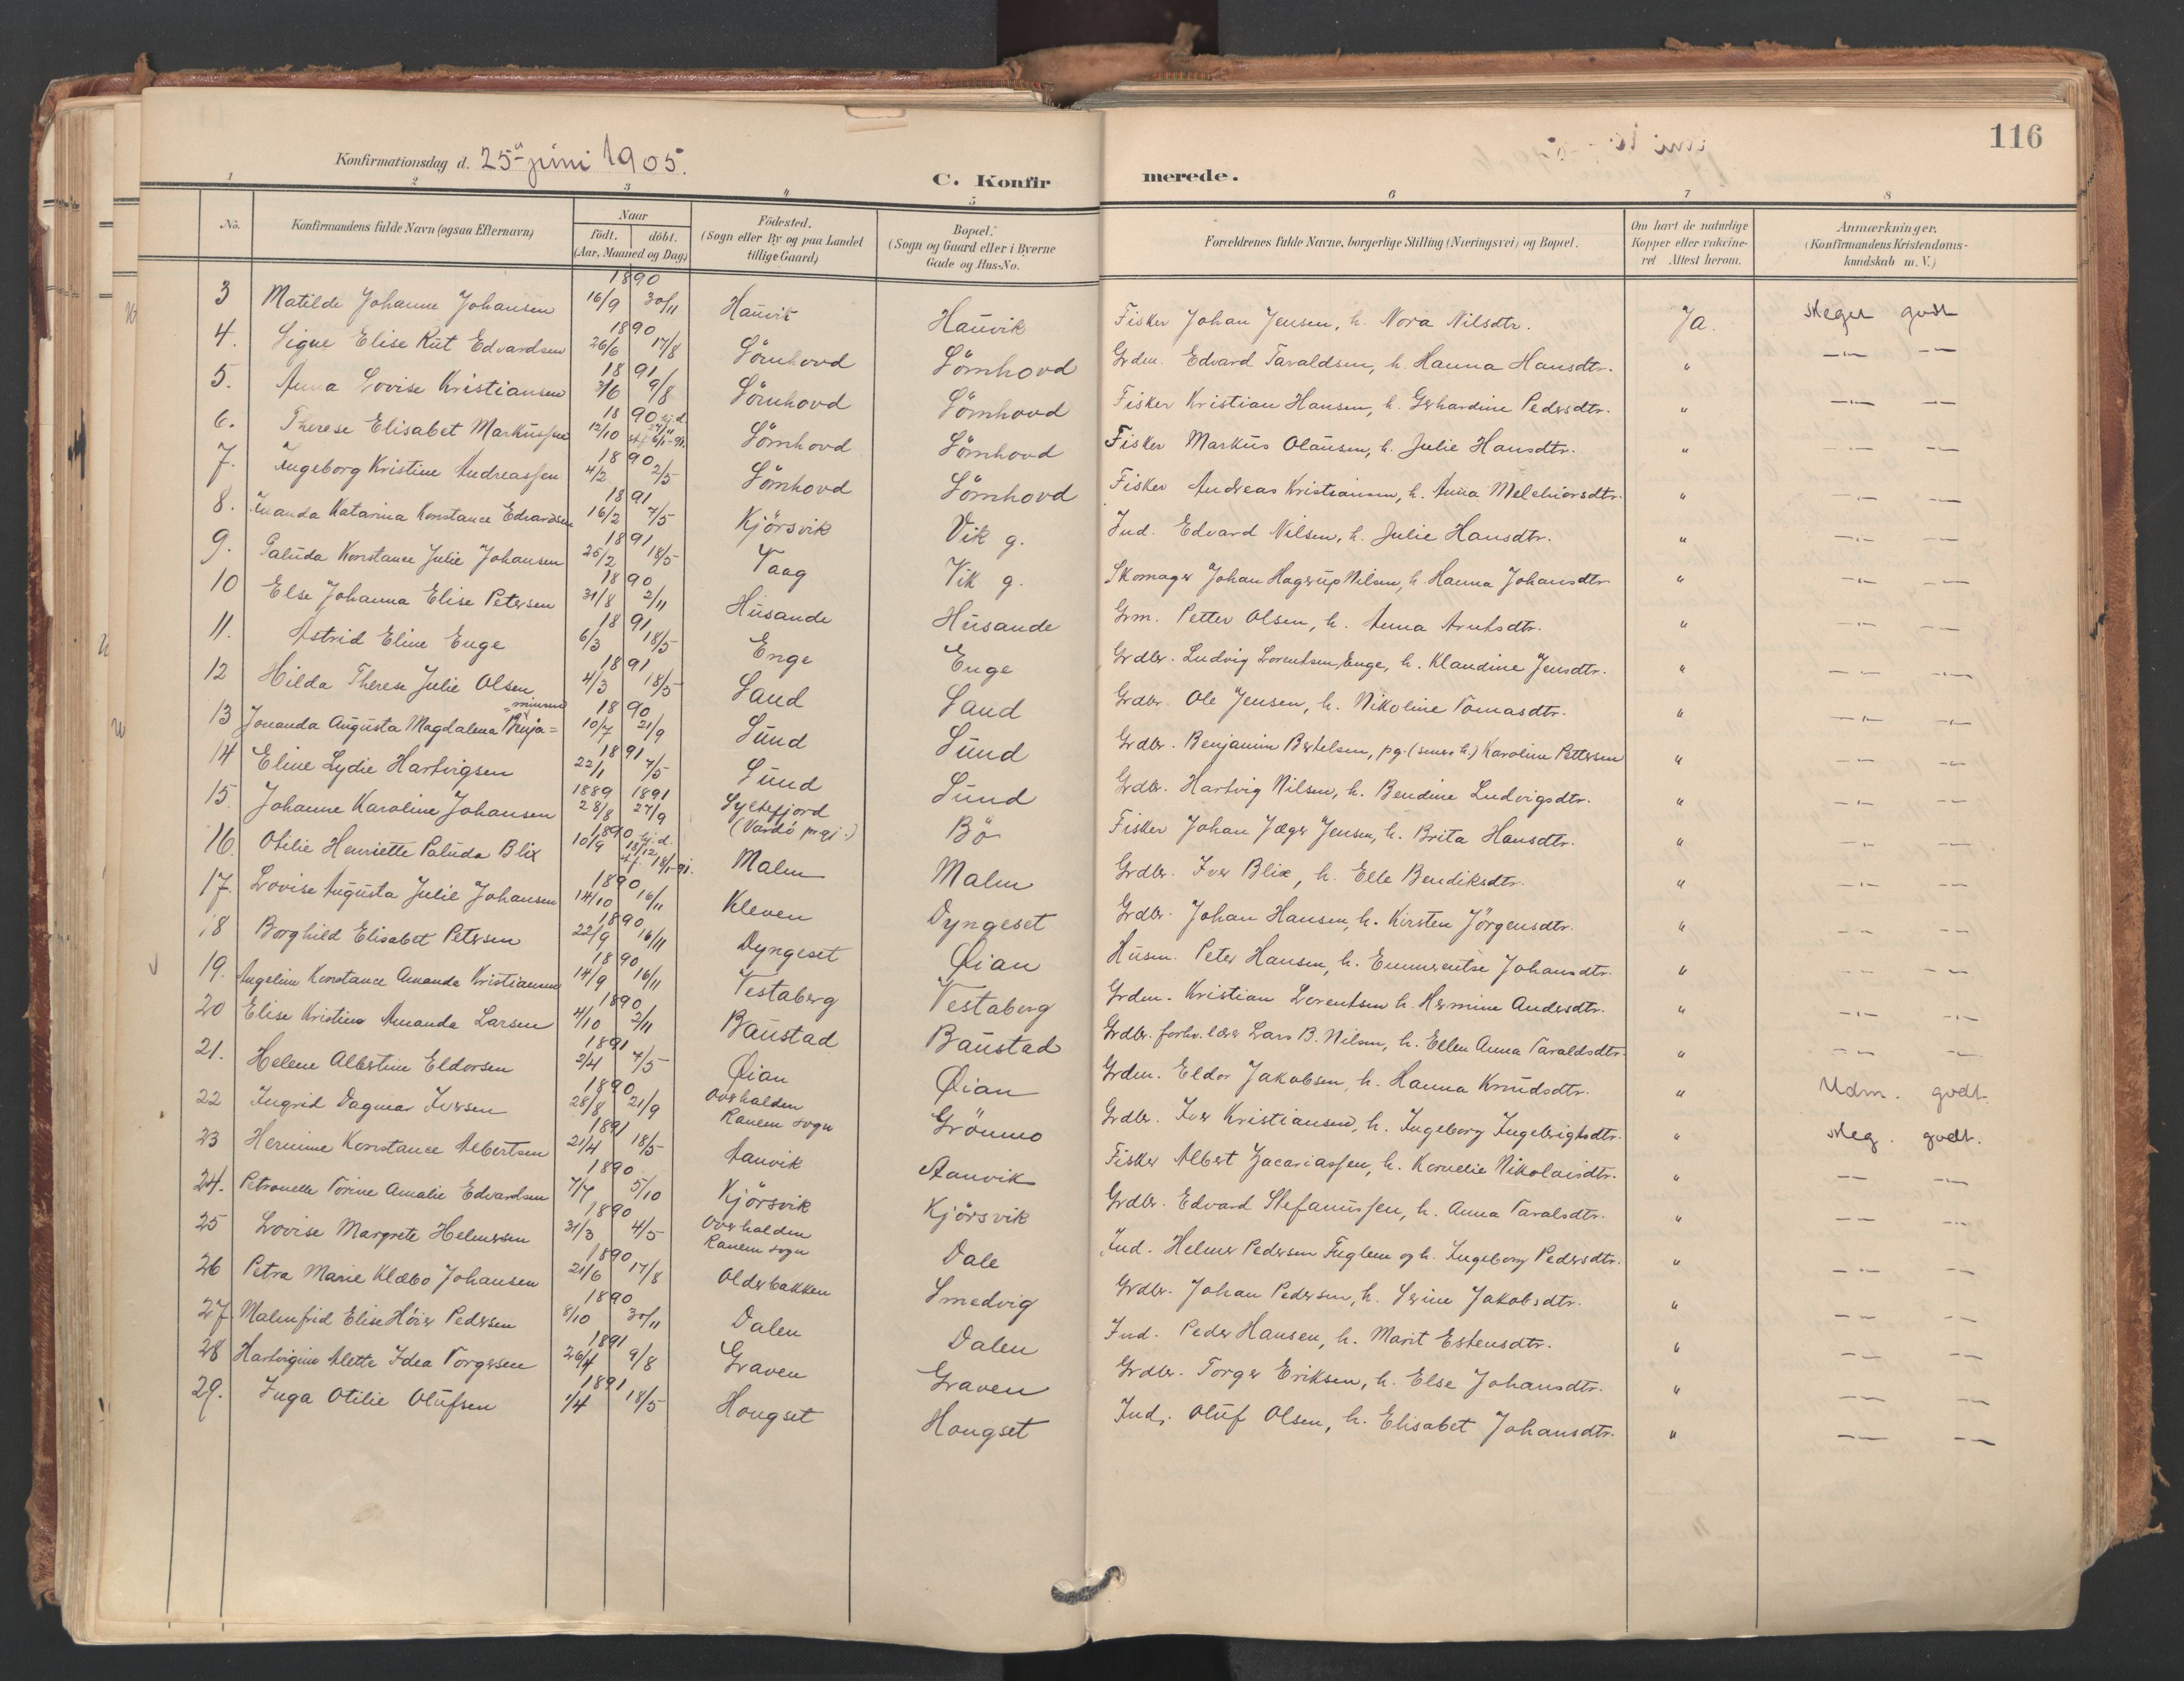 116
Konfirmationsdag d. 25 juni 1905.
C. Konfirmerede.
1 2 3 4 5 6 7 8
No. | Konfirmandens fulde Navn (ogsaa Efternavn) | Naar födt. döbt. (Aar, Maaned og Dag) | Födested. (Sogn eller By og paa Landet tillige Gaard) | Bopæl. (Sogn og Gaard eller i Byerne Gade og Hus-No. | Forældrenes fulde Navne, borgerlige Stilling (Næringsvei) og Bopæl. | Om havt de naturlige Kopper eller vakcineret Attest herom. | Anmærkninger. (Konfirmandens Kristendomskundskab m. V.)
3 Matilde Johanne Johansen 1890 16/9 30/11 Hauvik Hauvik Fisker Johan Jensen, h. Nora Nilsdtr. Ja. Meget godt
4. Signe Elise Rut Edvardsen 1890 26/6 17/8 Sörnhovd Sörnhovd Grdm. Edvard Taraldsen, h. Hanna Hansdtr. " — —
5. Anna Lovise Kristiansen 1891 3/6 9/8 Sörnhovd Sörnhovd Fisker Kristian Hansen, h. Gerhardine Pedersdtr. " — —
6. Therese Elisabet Markussen 1890 12/10 hj.d. 27/11 st.f. 6/1-91 Sörnhovd Sörnhovd Fisker Markus Olausen, h. Julie Hansdtr. " — —
7. Ingeborg Kristine Andreassen 1890 4/2 2/5 Sörnhovd Sörnhovd Fisker Andreas Kristiansen, h. Anna Melchiorsdtr. " — —
8. Amanda Katarina Konstance Edvardsen 1891 16/2 7/5 Kjörsvik Vik g. Ind. Edvard Nilsen, h. Julie Hansdtr. " — —
9. Paluda Konstance Julie Johansen 1891 25/2 18/5 Vaag Vik g. Skomager Johan Hagerup Nilsen, h. Hanna Johansdtr " — —
10 Else Johanna Elise Petersen 1890 31/8 2/11 Husande Husande Grm. Petter Olsen, h. Anna Arntsdtr. " — —
11. Astrid Eline Enge 1891 6/3 18/5 Enge Enge Grdbr. Ludvig Lorentsen Enge, h. Klaudine Jensdtr. " — —
12 Hilda Therese Julie Olsen 1891 4/3 18/5 Sand Sand Grdbr. Ole Jensen, h. Nikoline Tomasdtr. " — —
13 Jonanda Augusta Magdalena Benja=minsen 1890 10/7 21/9 Sund Sund Grdbr. Benjamin Bertelsen, pg. (senere h.) Karoline Pettersen " — —
14 Eline Lydie Hartvigsen 1891 22/1 7/5 Sund Sund Grdbr. Hartvig Nilsen, h. Bendine Ludvigsdtr. " — —
15. Johanne Karoline Johansen 1889 28/8 1891 27/9 Syltefjord (Vardö prgj.) Bö Fisker Johan Jæger Jensen, h. Brita Hansdtr. " — —
16. Otilie Henriette Paluda Blix 1890 10/9 hj.d. 18/12 st.f. 18/1-91. Malm Malm Grdbr. Iver Blix, h. Elle Bendiksdtr. " — —
17. Lovise Augusta Julie Johansen 1890 14/10 16/11 Kleven Dyngeset Grdbr. Johan Hansen, h. Kirsten Jörgensdtr. " — —
18 Borghild Elisabet Petersen 1890 22/9 16/11 Dyngeset Øian Husm. Peter Hansen, h. Emmerentse Johansdtr. " — —
19. Angeline Konstance Amanda Kristiansen 1890 14/9 16/11 Vestaberg Vestaberg Grdm. Kristian Lorentsen h. Hermine Andersdtr. " — —
20 Elise Kristine Amanda Larsen 1890 4/10 2/11 Baustad Baustad Grdbr. forhv. lærer Lars B. Nilsen, h. Ellen Anna Taraldsdtr. " — —
21. Helene Albertine Eldorsen 1891 2/4 7/5 Øian Øian Grdm. Eldor Jakobsen, h. Hanna Knudsdtr. " Udm. godt.
22 Ingrid Dagmar Iversen 1890 28/8 21/9 Overhalden Ranem sogn Grönmo Grdbr. Iver Kristiansen, h. Ingeborg Ingebrigtsdtr. " Meg. godt.
23 Hermine Konstance Albertsen 1891 21/4 18/5 Aanvik Aanvik Fisker Albert Zacariassen, h. Kornelie Nikolaisdtr. " — —
24. Petronelle Torine Amalie Edvardsen 1890 7/7 5/10 Kjörsvik Kjörsvik Grdbr. Edvard Stefanussen, h. Anna Taralsdtr. " — —
25 Lovise Margrete Helmersen 1890 31/3 4/5 Overhalden Ranem sogn Dale Ind. Helmer Pedersen Fuglem og h. Ingeborg Pedersdtr. " — —
26 Petra Marie Klæbo Johansen 1890 21/6 17/8 Olderbakken Smedvig Grdbr. Johan Pedersen, h. Serine Jakobsdtr. " — —
27. Malmfrid Elise Höier Pedersen 1890 8/10 30/11 Dalen Dalen Ind. Peder Hansen, h. Marit Estensdtr. " — —
28 Hartvigine Alette Idea Torgersen 1891 26/4 9/8 Graven Graven Grdbr. Torger Eriksen, h. Else Johansdtr. " — —
29. Inga Otilie Olufsen 1891 1/4 18/5 Hougset Hougset Ind. Oluf Olsen, h. Elisabet Johansdtr. " — —